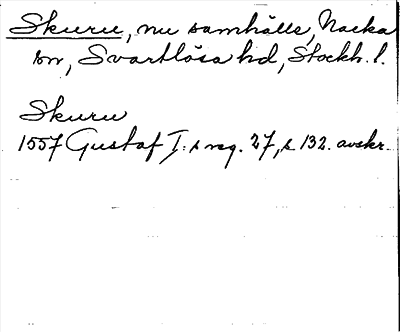 Skuru, nu samhälle, Nacka
sn, Svartlösa hd, Stockh. l.
Skuru
1557 Gustaf I:s reg. 27, s 132. avskr.